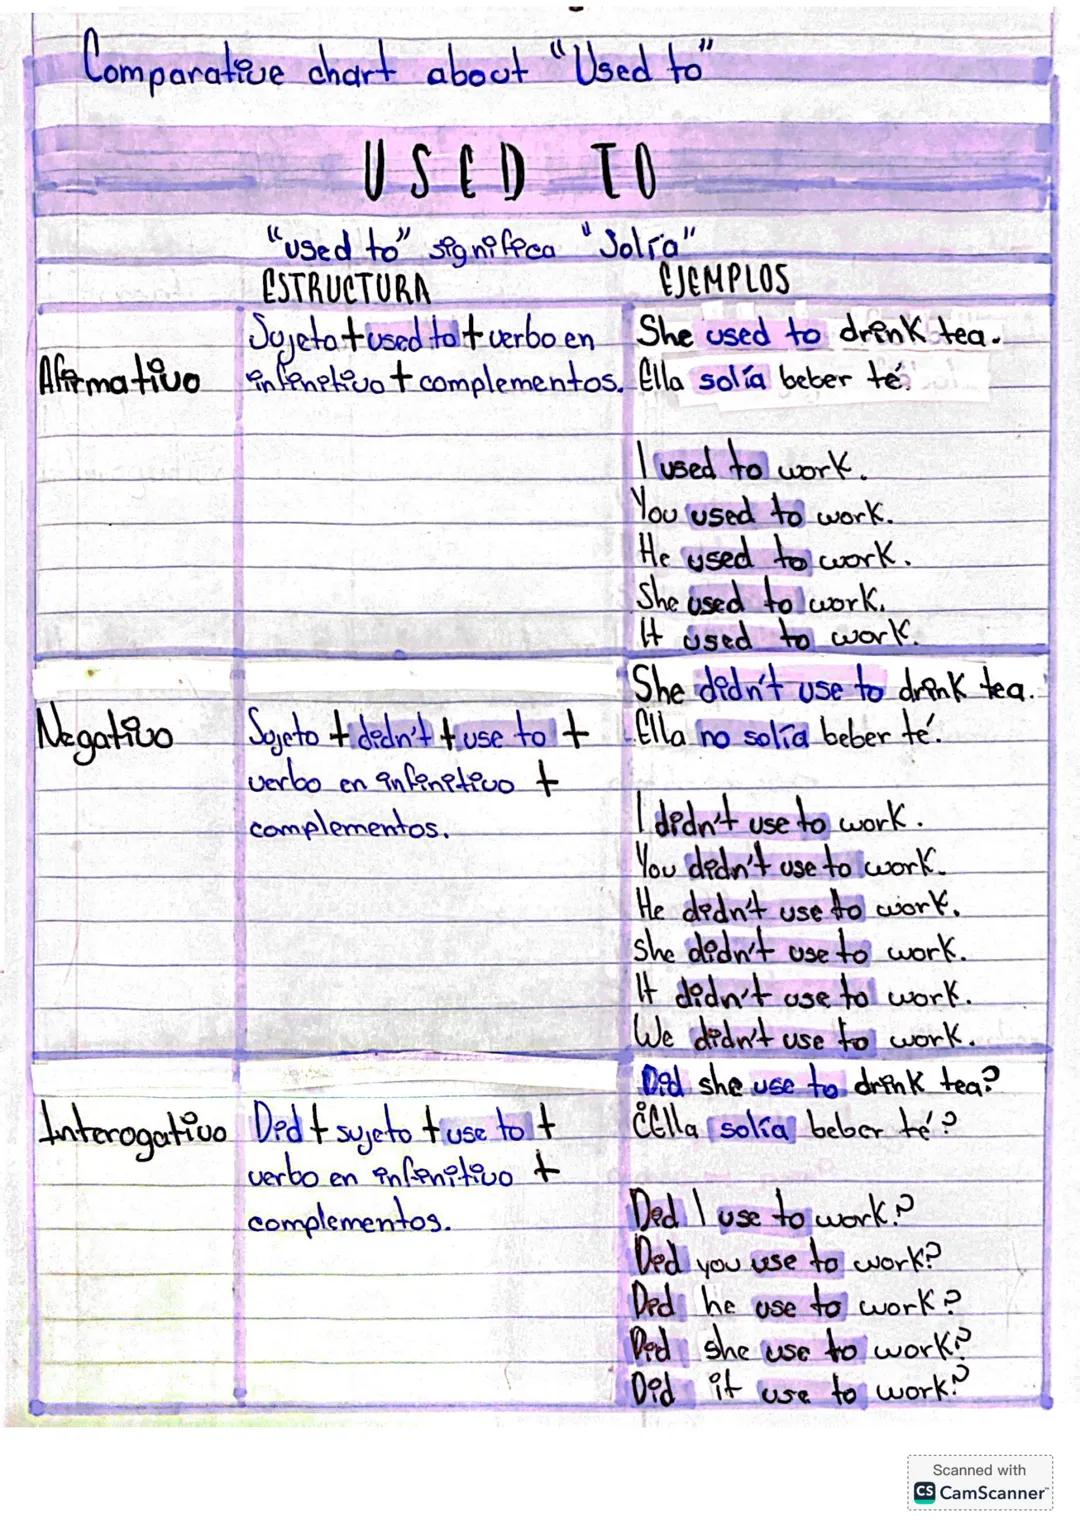 Comparative chart about "Used to"
USED TO
"used to" significa "Solía"
ESTRUCTURA EJEMPLOS
Afirmativo
Sujeto + used to + verbo en
infinitivo + complementos.
She used to drink tea.
Ella solía beber té.
I used to work.
You used to work.
He used to work.
She used to work.
It used to work.
Negativo
Sujeto + didn't + use to +
verbo en infinitivo +
complementos.
She didn't use to drink tea.
Ella no solía beber té.
I didn't use to work.
You didn't use to work.
He didn't use to work.
She didn't use to work.
It didn't use to work.
We didn't use to work.
Interogativo
Did + sujeto + use to +
verbo en infinitivo +
complementos.
Did she use to drink tea?
¿Ella solía beber té?
Did I use to work?
Did you use to work?
Did he use to work?
Did she use to work?
Did it use to work?
Scanned with
CS CamScanner